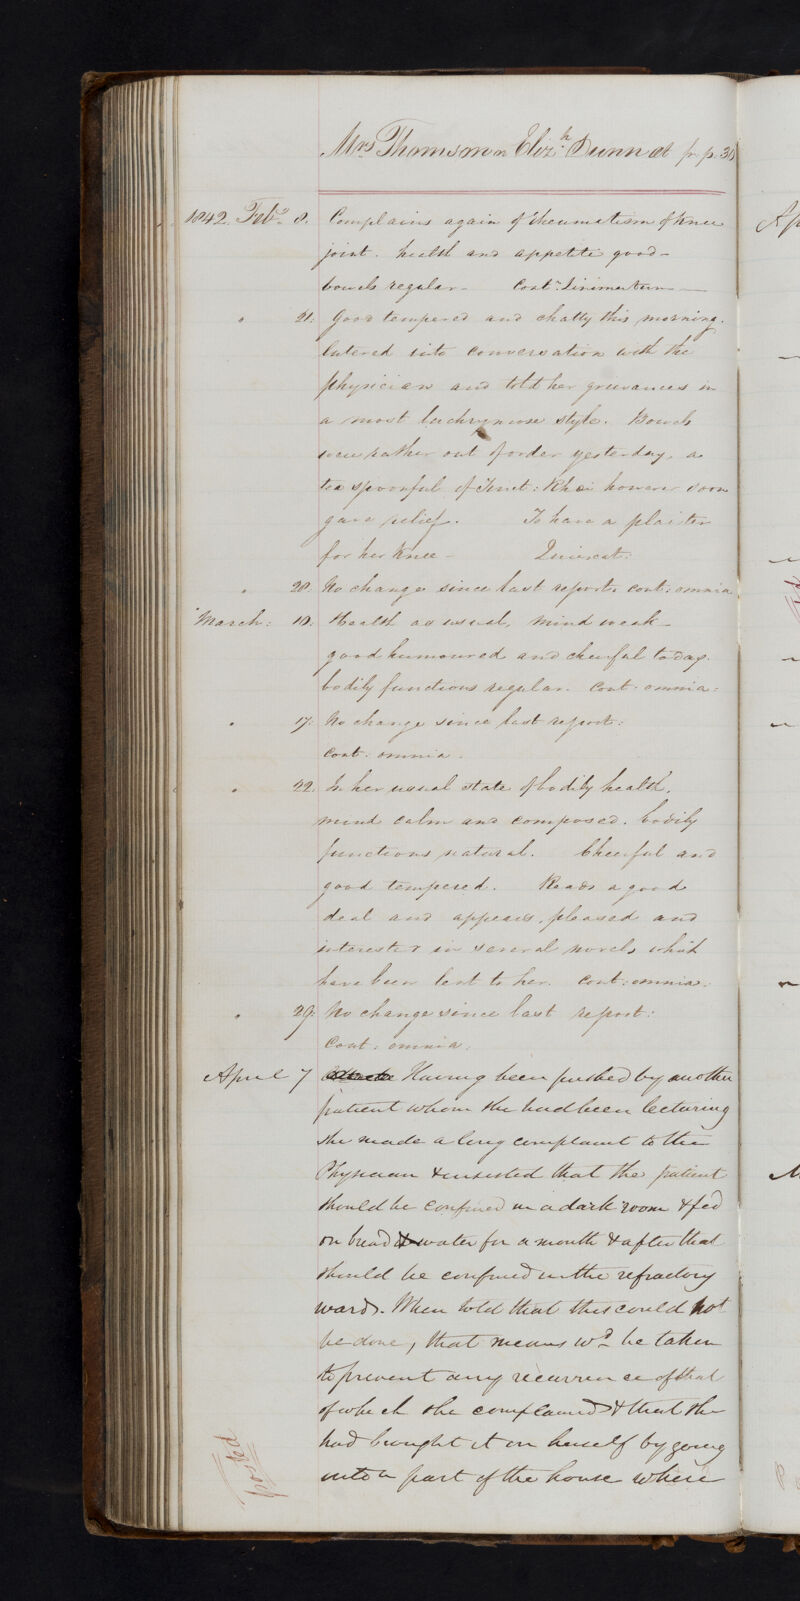 Mrs Thomson Elizh Dunn at fr. p. 38
1842. Feby 8. Complains again of rheumatism of knee
joint. health and appetite good -
bowels regular - Cont. Linimentum
" 21. Good tempered and chatty this morning.
Entered into conversation with the
physician and told her grievances in
a most lachrymose style. Bowels
were rather out of order yesterday, a
tea spoonful of Tinct: Rhei however soon
gave relief. To have a plaister
for her knee -
" 28. No change since last report. cont: omnia
March: 10. Health as usual, mind weak -
good humoured and cheerful today.
bodily functions regular. Cont: omnia:
" 17. No change since last report:
cont: omnia.
" 22. In her usual state of bodily health,
mind calm and composed. bodily
functions natural. Cheerful and
good tempered. Reads a good
deal and appears pleased and
interested in several novels which
have been lent to her. Cont: omnia:
" 29. No change since last report:
Cont: omnia.
April 7 Having been pushed by another
patient whom she had been lecturing
she made a long complaint to the
Physician & insisted that the patient
should be confined in a dark room & fed
on bread & water for a month & after that
should be confined in the refractory
ward. When told that this could not
be done, that means wd be taken
to prevent any recurrence of that
of which she complained & that she
had brought it on herself by going
into a part of the house where
posted